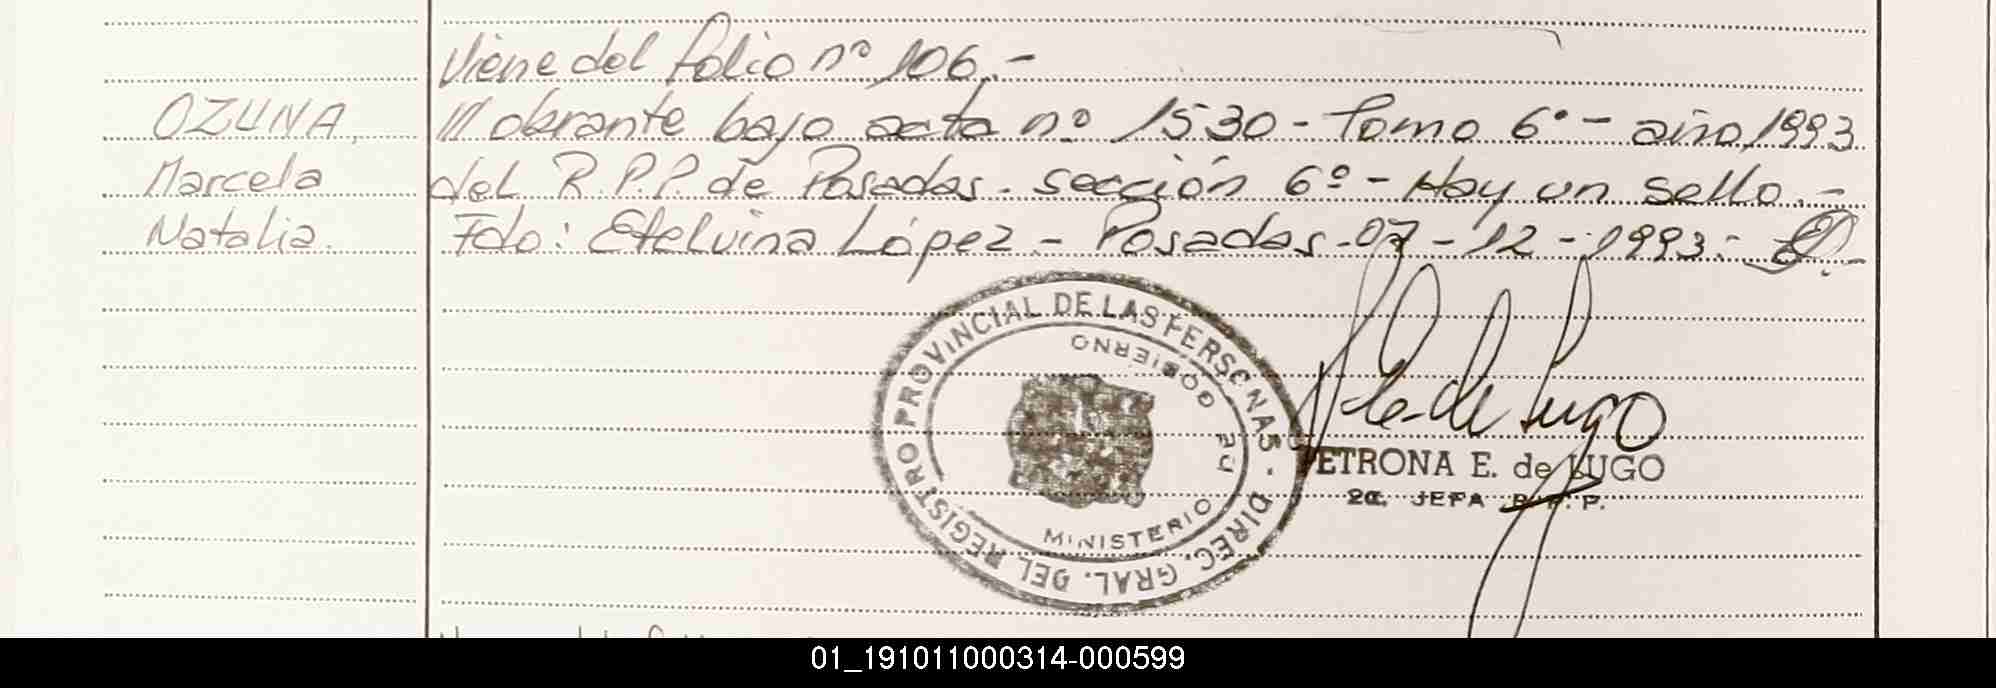 Viene del folio nº 106.-
OZUNA, /// obrante bajo acta nº 1530 - Tomo 6º - año 1993
Marcela del R.P.P. de Posadas - sección 6º - Hay un sello.-
Natalia. Fdo: Etelvina López - Posadas - 07 - 12 - 1993.-
DIREC. GRAL. DEL REGISTRO PROVINCIAL DE LAS PERSONAS -
MINISTERIO DE GOBIERNO
de Lugo
PETRONA E. de LUGO
JEFA R.P.P.
01_191011000314-000599